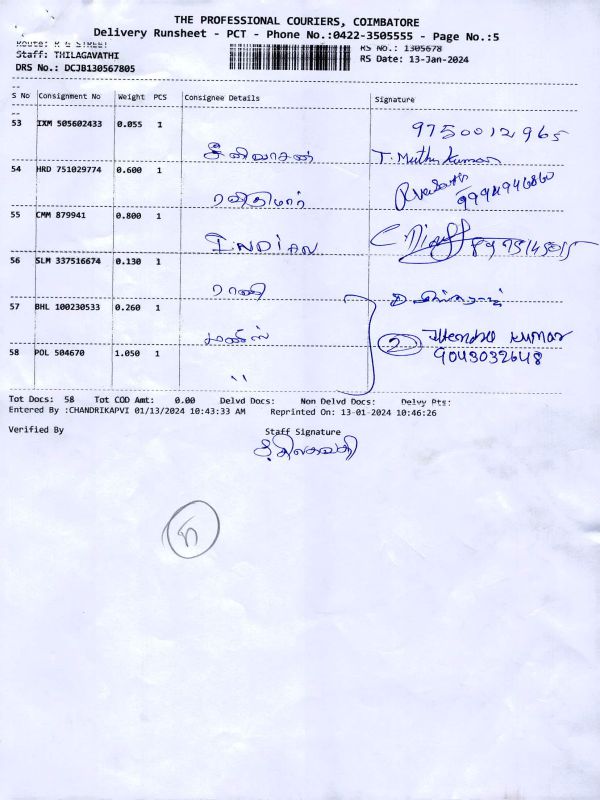 THE PROFESSIONAL COURIERS, COIMBATORE
Delivery Runsheet - PCT - Phone No.:0422-3505555 - Page No.:5
Route: R G STREET RS No.: 1305678
Staff: THILAGAVATHI RS Date: 13-Jan-2024
DRS No.: DCJB130567805
S No Consignment No Weight PCS Consignee Details Signature
53 IXM 505602433 0.055 1 9750012965
சீனிவாசன் T. Muthu Kumar
54 HRD 751029774 0.600 1
ரவிகுமார்
55 CMM 879941 0.800 1
INDIAN
56 SLM 337516674 0.130 1
ராணி
57 BHL 100230533 0.260 1
2 Jitendra Kumar
58 POL 504670 1.050 1 9043032648
"
Tot Docs: 58 Tot COD Amt: 0.00 Delvd Docs: Non Delvd Docs: Delvy Pts:
Entered By :CHANDRIKAPVI 01/13/2024 10:43:33 AM Reprinted On: 13-01-2024 10:46:26
Verified By Staff Signature